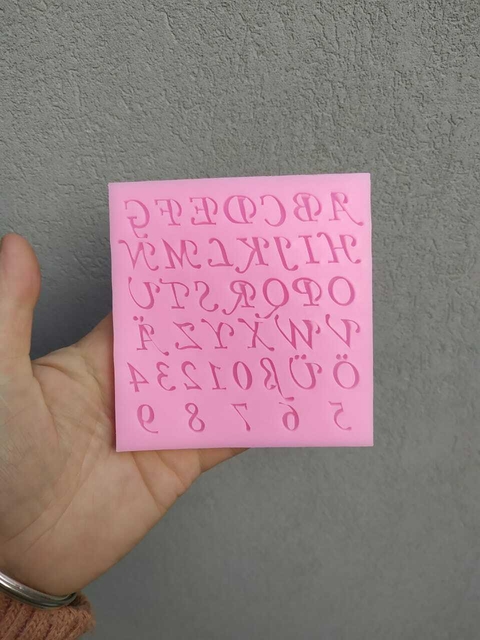 ABCDEFG
HIJKLMN
OPQRSTU
VWXYZÄ
ÖÜß01234
56789